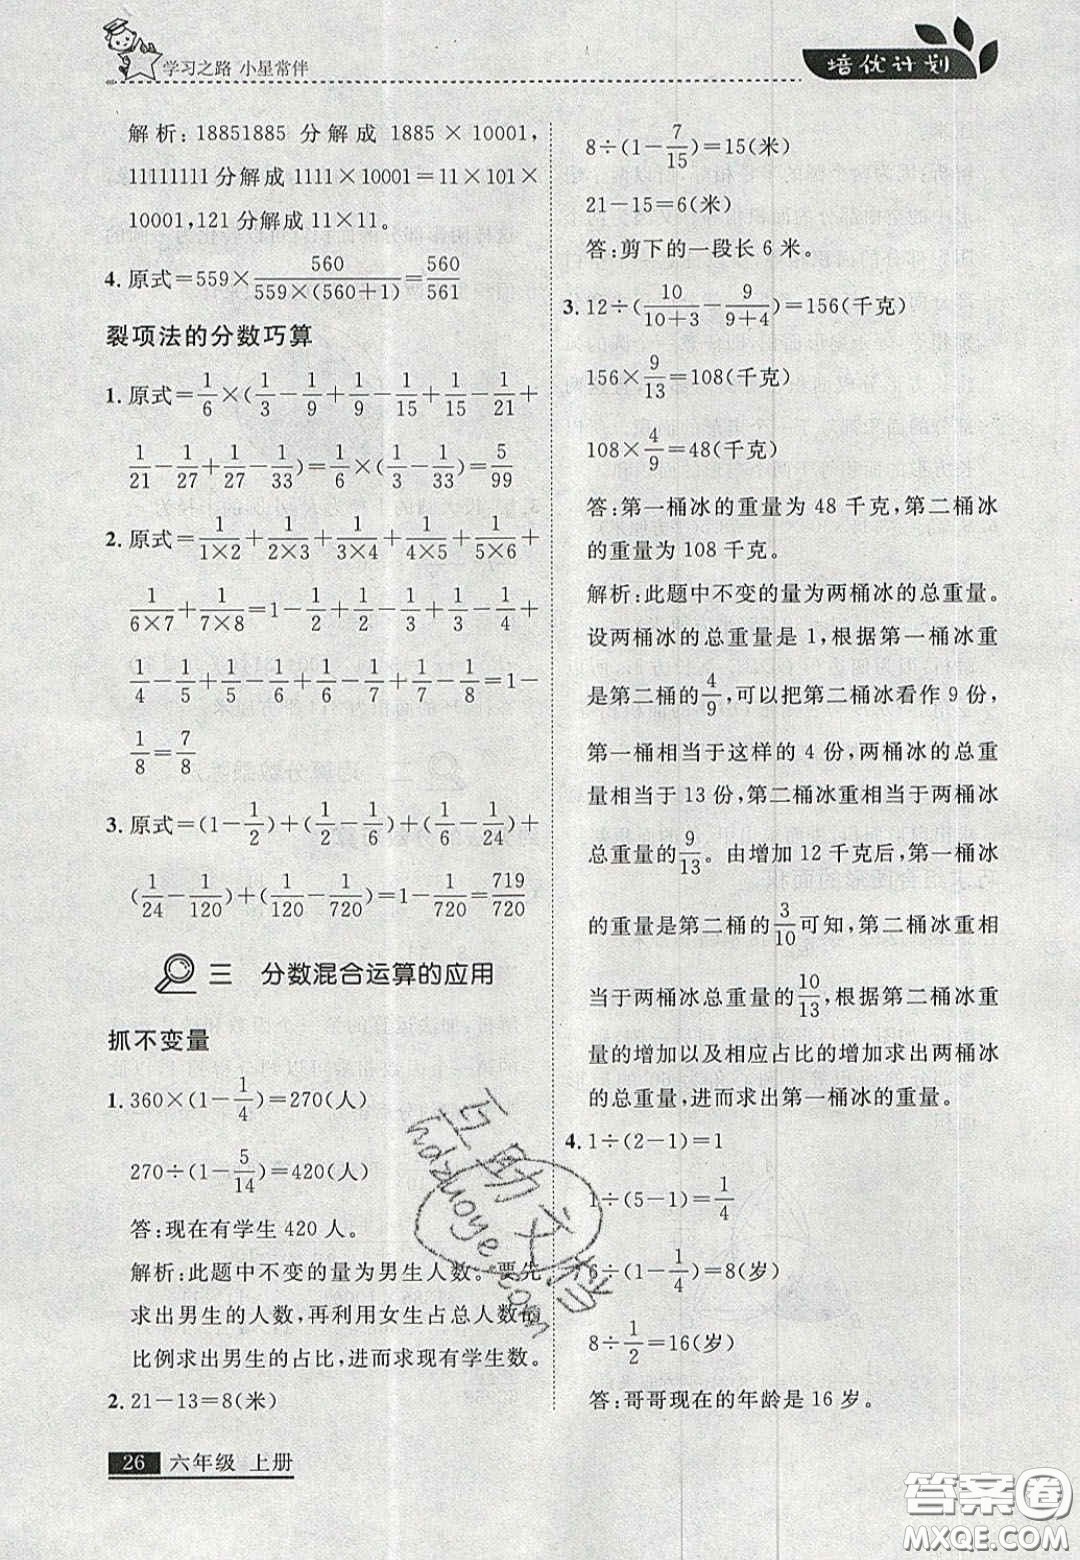 学习之路 小星常伴
培优计划
解析:18851885 分解成 1885×10001,
11111111分解成1111×10001=11×101×
10001,121分解成11×11。
4. 原式=559×560/(559×(560+1))=560/561
裂项法的分数巧算
1. 原式=1/6×(1/3-1/9+1/9-1/15+1/15-1/21+
1/21-1/27+1/27-1/33)=1/6×(1/3-1/33)=5/99
2. 原式=1/(1×2)+1/(2×3)+1/(3×4)+1/(4×5)+1/(5×6)+
1/(6×7)+1/(7×8)=1-1/2+1/2-1/3+1/3-1/4+
1/4-1/5+1/5-1/6+1/6-1/7+1/7-1/8=1-
1/8=7/8
3. 原式=(1-1/2)+(1/2-1/6)+(1/6-1/24)+
(1/24-1/120)+(1/120-1/720)=1-1/720=719/720
三 分数混合运算的应用
抓不变量
1. 360×(1-1/4)=270(人)
270÷(1-5/14)=420(人)
答:现在有学生 420 人。
解析:此题中不变的量为男生人数。要先
求出男生的人数,再利用女生占总人数的
比例求出男生的占比,进而求现有学生数。
2. 21-13=8(米)
8÷(1-7/15)=15(米)
21-15=6(米)
答:剪下的一段长 6 米。
3. 12÷(10/(10+3)-9/(9+4))=156(千克)
156×9/13=108(千克)
108×4/9=48(千克)
答:第一桶冰的重量为 48 千克,第二桶冰
的重量为 108 千克。
解析:此题中不变的量为两桶冰的总重量。
设两桶冰的总重量是 1,根据第一桶冰重
是第二桶的4/9,可以把第二桶冰看作 9 份,
第一桶相当于这样的 4 份,两桶冰的总重
量相当于 13 份,第二桶冰重相当于两桶冰
总重量的9/13。由增加 12 千克后,第一桶冰
的重量是第二桶的3/10可知,第二桶冰重相
当于两桶冰总重量的10/13,根据第二桶冰重
量的增加以及相应占比的增加求出两桶冰
的总重量,进而求出第一桶冰的重量。
4. 1÷(2-1)=1
1÷(5-1)=1/4
6÷(1-1/4)=8(岁)
8÷1/2=16(岁)
答:哥哥现在的年龄是 16 岁。
互助文档
hdzuoye.com
26 六年级 上册
答案圈
MXQE.COM